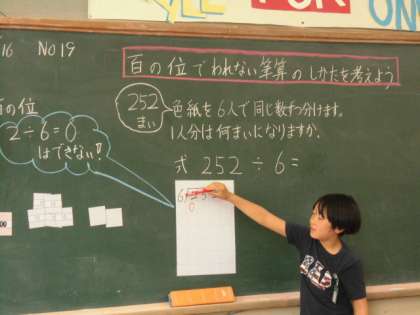 FOR
ON
16 NO19
百の位でわれない筆算のしかたを考えよう
の位
2÷6=0
はできない!!
252
まい
色紙を6人で同じ数ずつ分けます。
1人分は何まいになりますか。
式 252÷6=
6
0